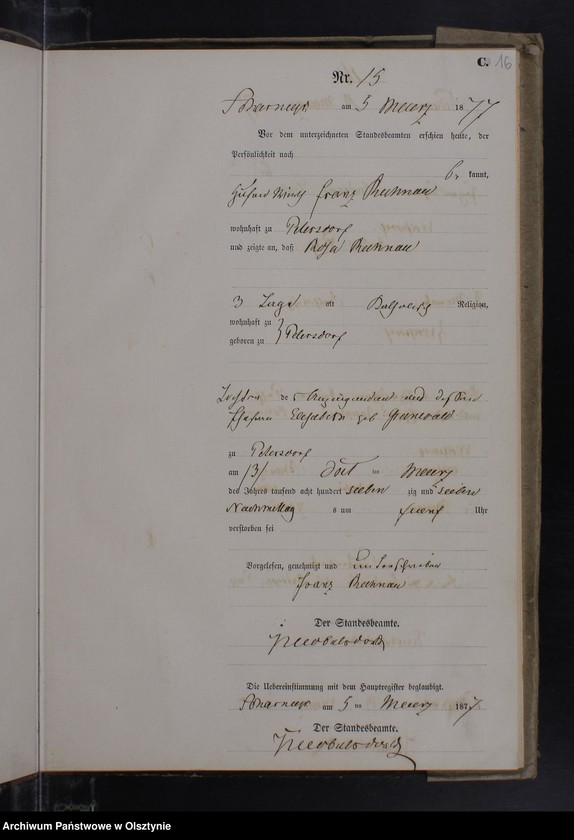 C. 16
Nr. 15
am 5 Maerz 1877
Vor dem unterzeichneten Standesbeamten erschien heute, der
Persönlichkeit nach
be kannt,
Franz Ruhnau
wohnhaft zu Petersdorf
und zeigte an, daß Rosa Ruhnau
3 Tage alt Katholisch Religion,
wohnhaft zu
geboren zu Petersdorf
Tochter des Anzeigenden und dessen
Ehefrau Elisabeth geb Grunwald
zu Petersdorf
am 3 ten Maerz
des Jahres tausend acht hundert sieben zig und sieben
Nachmittag s um fuenf Uhr
verstorben sei
Vorgelesen, genehmigt und unterschrieben
Franz Ruhnau
Der Standesbeamte.
Die Uebereinstimmung mit dem Hauptregister beglaubigt.
am 5 ten Maerz 1877
Der Standesbeamte.
Archiwum Państwowe w Olsztynie